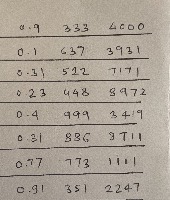 0.9 333 4000
0.1 637 3931
0.31 522 7171
0.23 448 8972
0.4 999 3419
0.31 886 3711
0.77 773 1111
0.91 351 2247